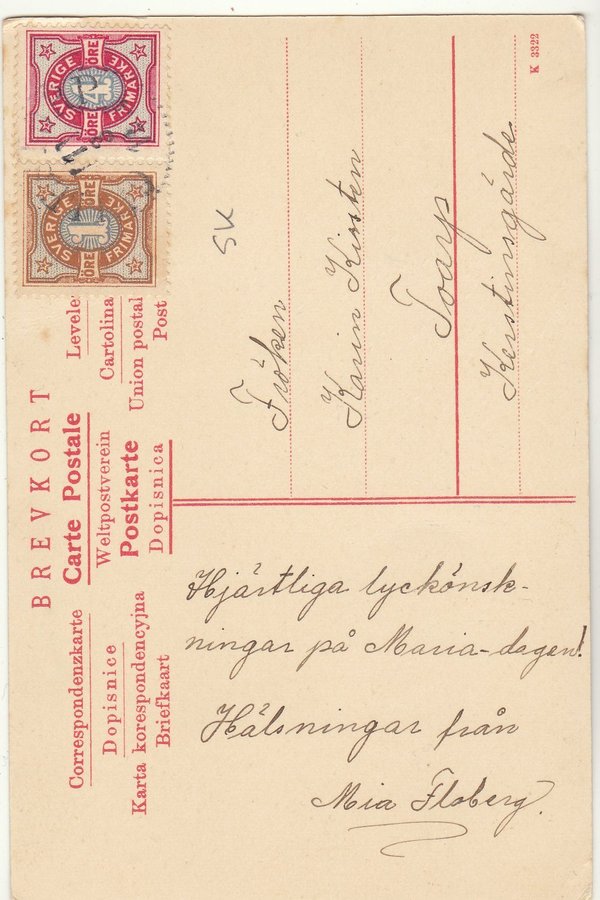 SVERIGE FRIMÄRKE
4 ÖRE ÖRE
SVERIGE FRIMÄRKE
1 ÖRE ÖRE
BREVKORT
Correspondenzkarte Carte Postale Levele
Dopisnice Weltpostverein Cartolina
Karta korespondencyjna Postkarte Union postal
Briefkaart Dopisnica Post
K 3322
SK
Fröken
Karin Kirsten
Toarp
Kerstinsgärde.
Hjärtliga lyckönsk-
ningar på Maria-dagen!
Hälsningar från
Mia Floberg.